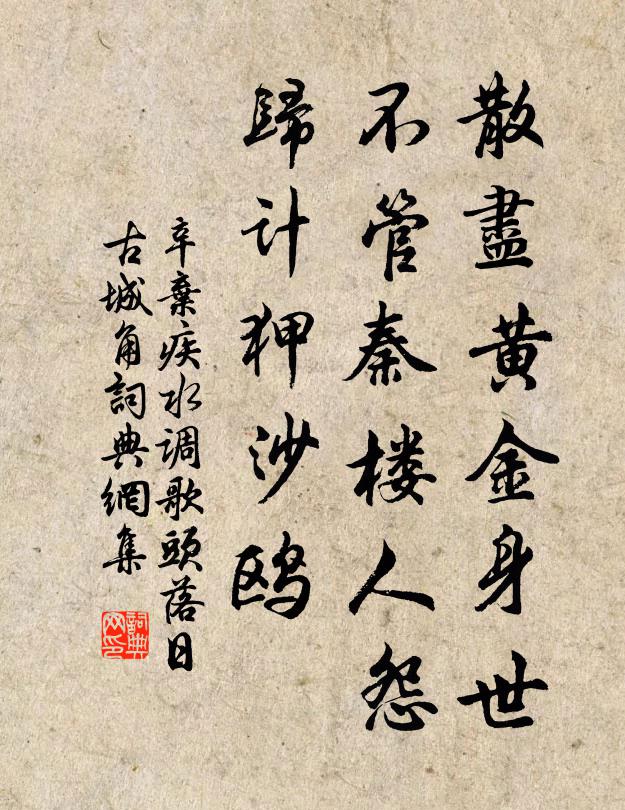 散盡黄金身世
不管秦楼人怨
歸计狎沙鸥
辛棄疾水调歌頭落日
古城角詞典網集
詞典
网印